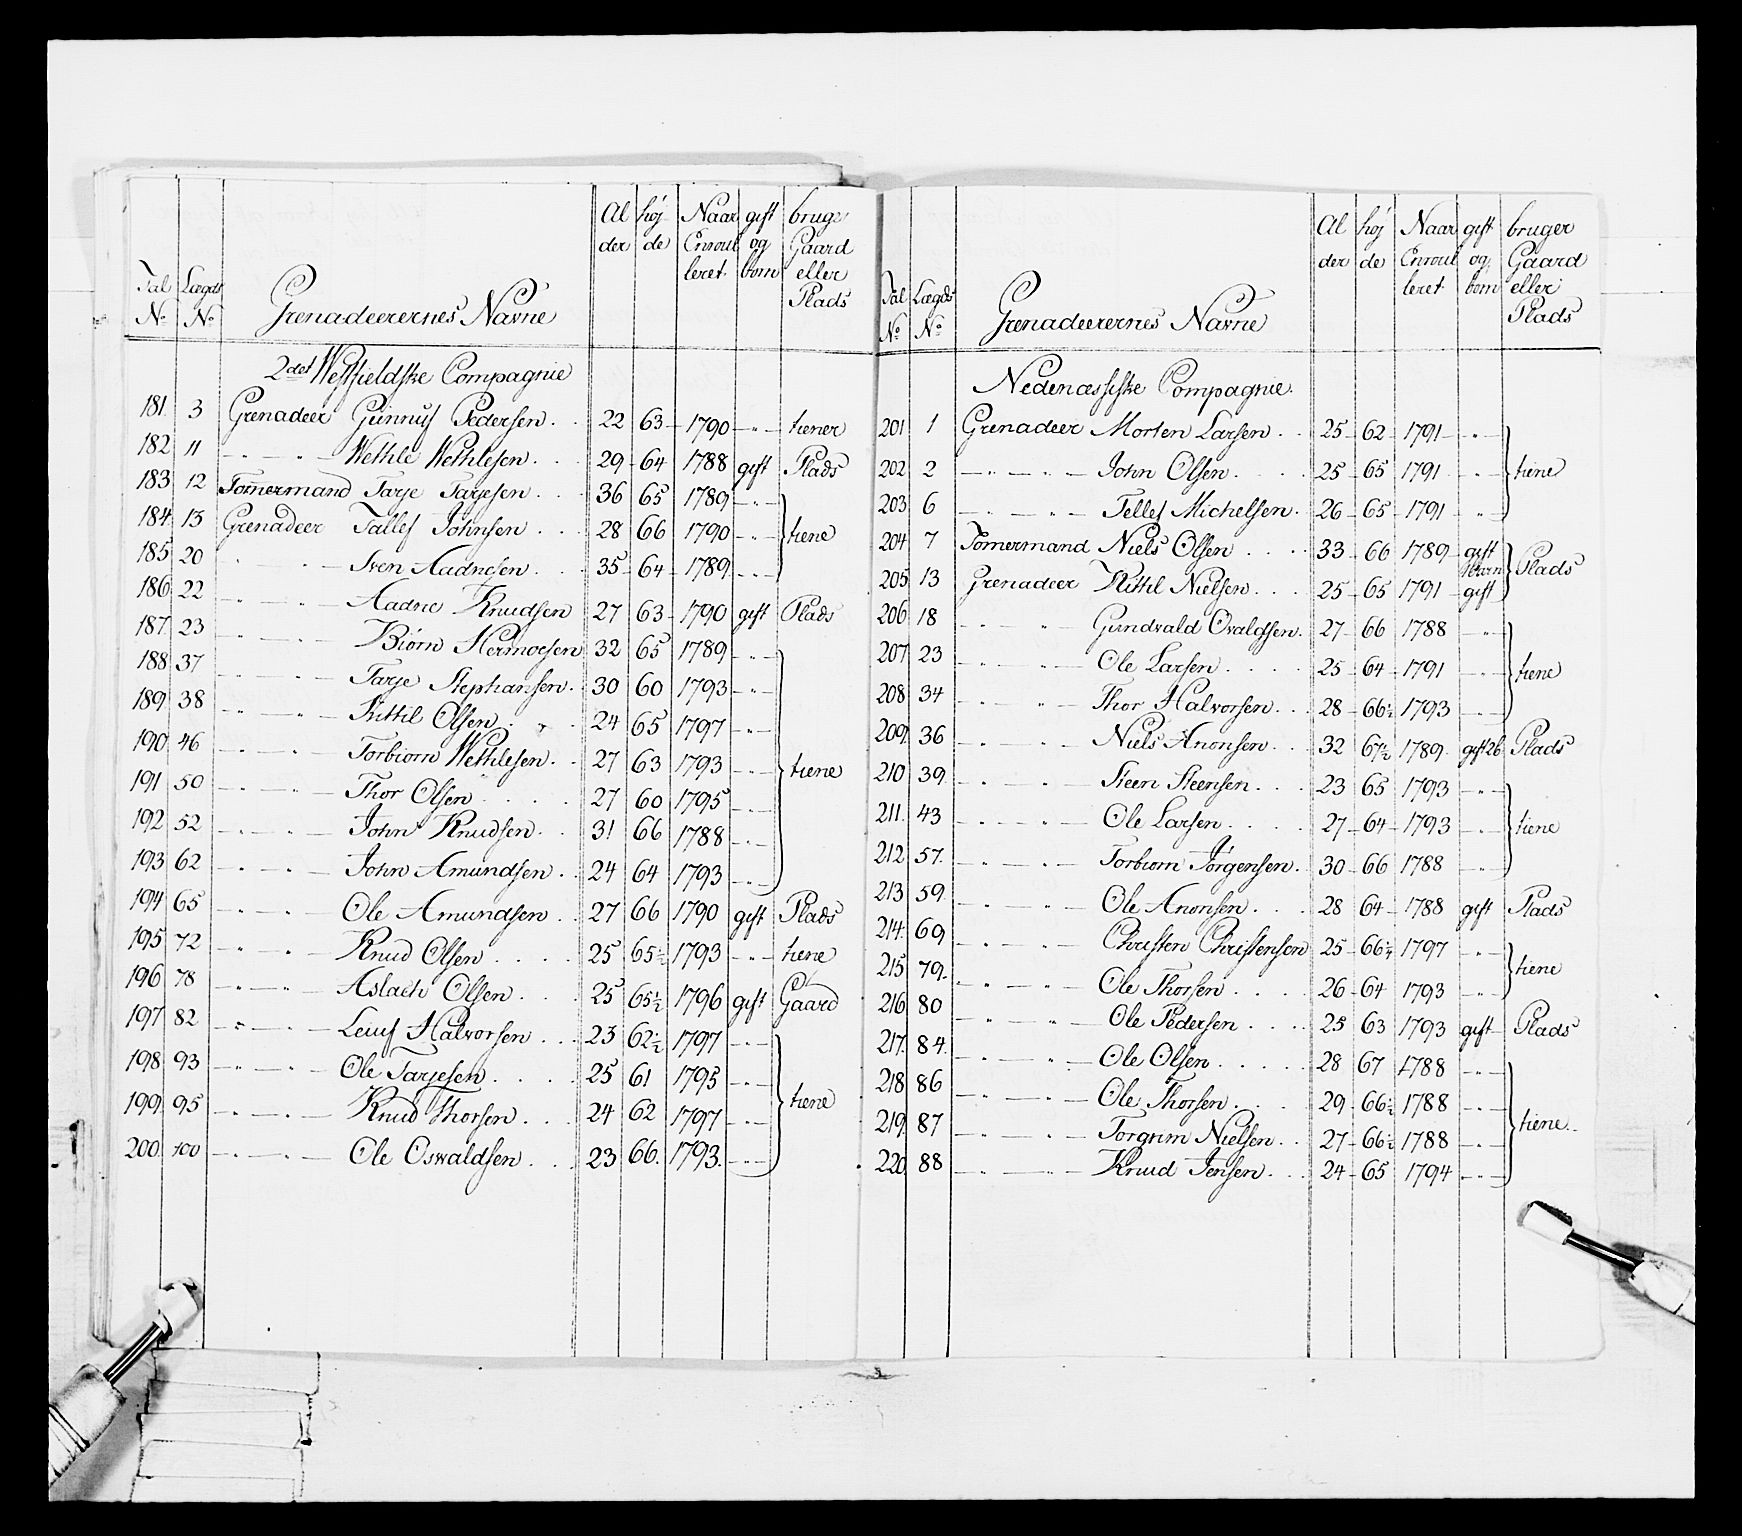 Tal No | Lægds No | Grenadeerernes Navne | Al der | høj de | Naar Enroul leret | gift og børn | bruger Gaard eller Plads
2det Westfieldske Compagnie
181. 3 Grenadeer Gunnuf Pedersen . . 22 63 - 1790 - " - tiener
182 11 - " - " - Wethle Wethlesen . . . 29 - 64 1788 gift Plads
183 12 Tømermand Tarje Tarjesen . . . 36 65 1789 - " -
184 13 Grenadeer Tallef Johnsen . . . 28 66 1790 - " - tiene
185 20 " - " - Sven Aadnesen . . . 35 - 64 - 1789 - " -
186 22 - " - " - Aadne Knudsen 27 63 - 1790 gift Plads
187. 23 - " - " - Biørn Hermoesen 32 65 1789 - " -
188 37 - " - " - Tarje Stephansen . 30 60 1793 - " -
189 38 - " - " - Kittil Olsen . . . 24 65 1797 - " -
190 46 - " - " - Torbiorn Wethlesen . . 27 63 1793 - " - tiene
191 50 - " - " - Thor Olsen . . . . 27 60 1795 - " -
192 52 - " - " - John Knudsen . . 31 66 1788 - " -
193 62 - " - " - John Amundsen . . 24 64 1793 - " -
194 65 - " - " - Ole Amundsen . . 27 66 1790 gift Plads
195 72 - " - " - Knud Olsen . . . . 25 65½ 1793 - " - tiene
196 78 - " - " - Aslach Olsen . . . . 25 65½ 1796 gift Gaard
197 82 - " - " - Leuf Halvorsen . . . 23 62½ 1797 - " -
198 93 - " - " - Ole Tarjesen . . . . 25 61 1795 - " -
199 95 - " - " - Knud Thorsen . . . 24 62 1797 - " - tiene
200 100 - " - " - Ole Oswaldsen . . . 23 66. 1793. - " -
Tal No | Lægds No | Grenadeerernes Navne | Al der | høj de | Naar Enroul leret | gift og børn | bruger Gaard eller Plads
Nedenæssiske Compagnie.
201 1 Grenadeer Morten Larsen . . 25 - 62 - 1791 - " -
202 2 - " - " - John Olsen . . . 25 65 1791 " - tiene
203 6 - " - " - Tellef Michelsen . 26 - 65 - 1791 "
204 7 Tømermand Niels Olsen . . . . 33 - 66 1789 - gift Barn Plads
205 13 Grenadeer Kittil Nielsen . . . 25 - 65 1791 - gift
206 18 - " - " - Gundvald Ovaldsen . 27 - 66 1788 - " -
207 23 - " - " - Ole Larsen . . . . 25 - 64 - 1791 - " - tiene
208 34 - " - " - Thor Halvorsen . . . 28 - 66½ 1793 - " -
209. 36 - " - " - Niels Anonsen . . . 32 67½ 1789. gift 2b. Plads
210 39. - " - " - Steen Steensen . . . 23 65 1793 - " -
211. 43 - " - " - Ole Larsen . . . . 27 - 64 - 1793 - " - tiene
212 57. - " - " - Torbiorn Jørgensen . 30 - 66 1788 - " -
213 59. - " - " - Ole Anonsen . . . 28 64 - 1788 gift Plads
214. 69 - " - " - Christen Christensen 25 - 66½ 1797 - " -
215 79. - " - " - Ole Thorsen . . . . 26 - 64 1793 - " - tiene
216 80 - " - " - Ole Pedersen . . . . 25 63 1793 gift - Plads
217. 84. - " - " - Ole Olsen . . . . . 28 67 1788 - " -
218 86 - " - " - Ole Thorsen . . . 29 - 66½ 1788 - " -
219. 87 - " - " - Torgrim Nielsen . . 27 - 66½ 1788 - " - tiene.
220 88 - " - " - Knud Jensen . . . 24 - 65 1794 - " -